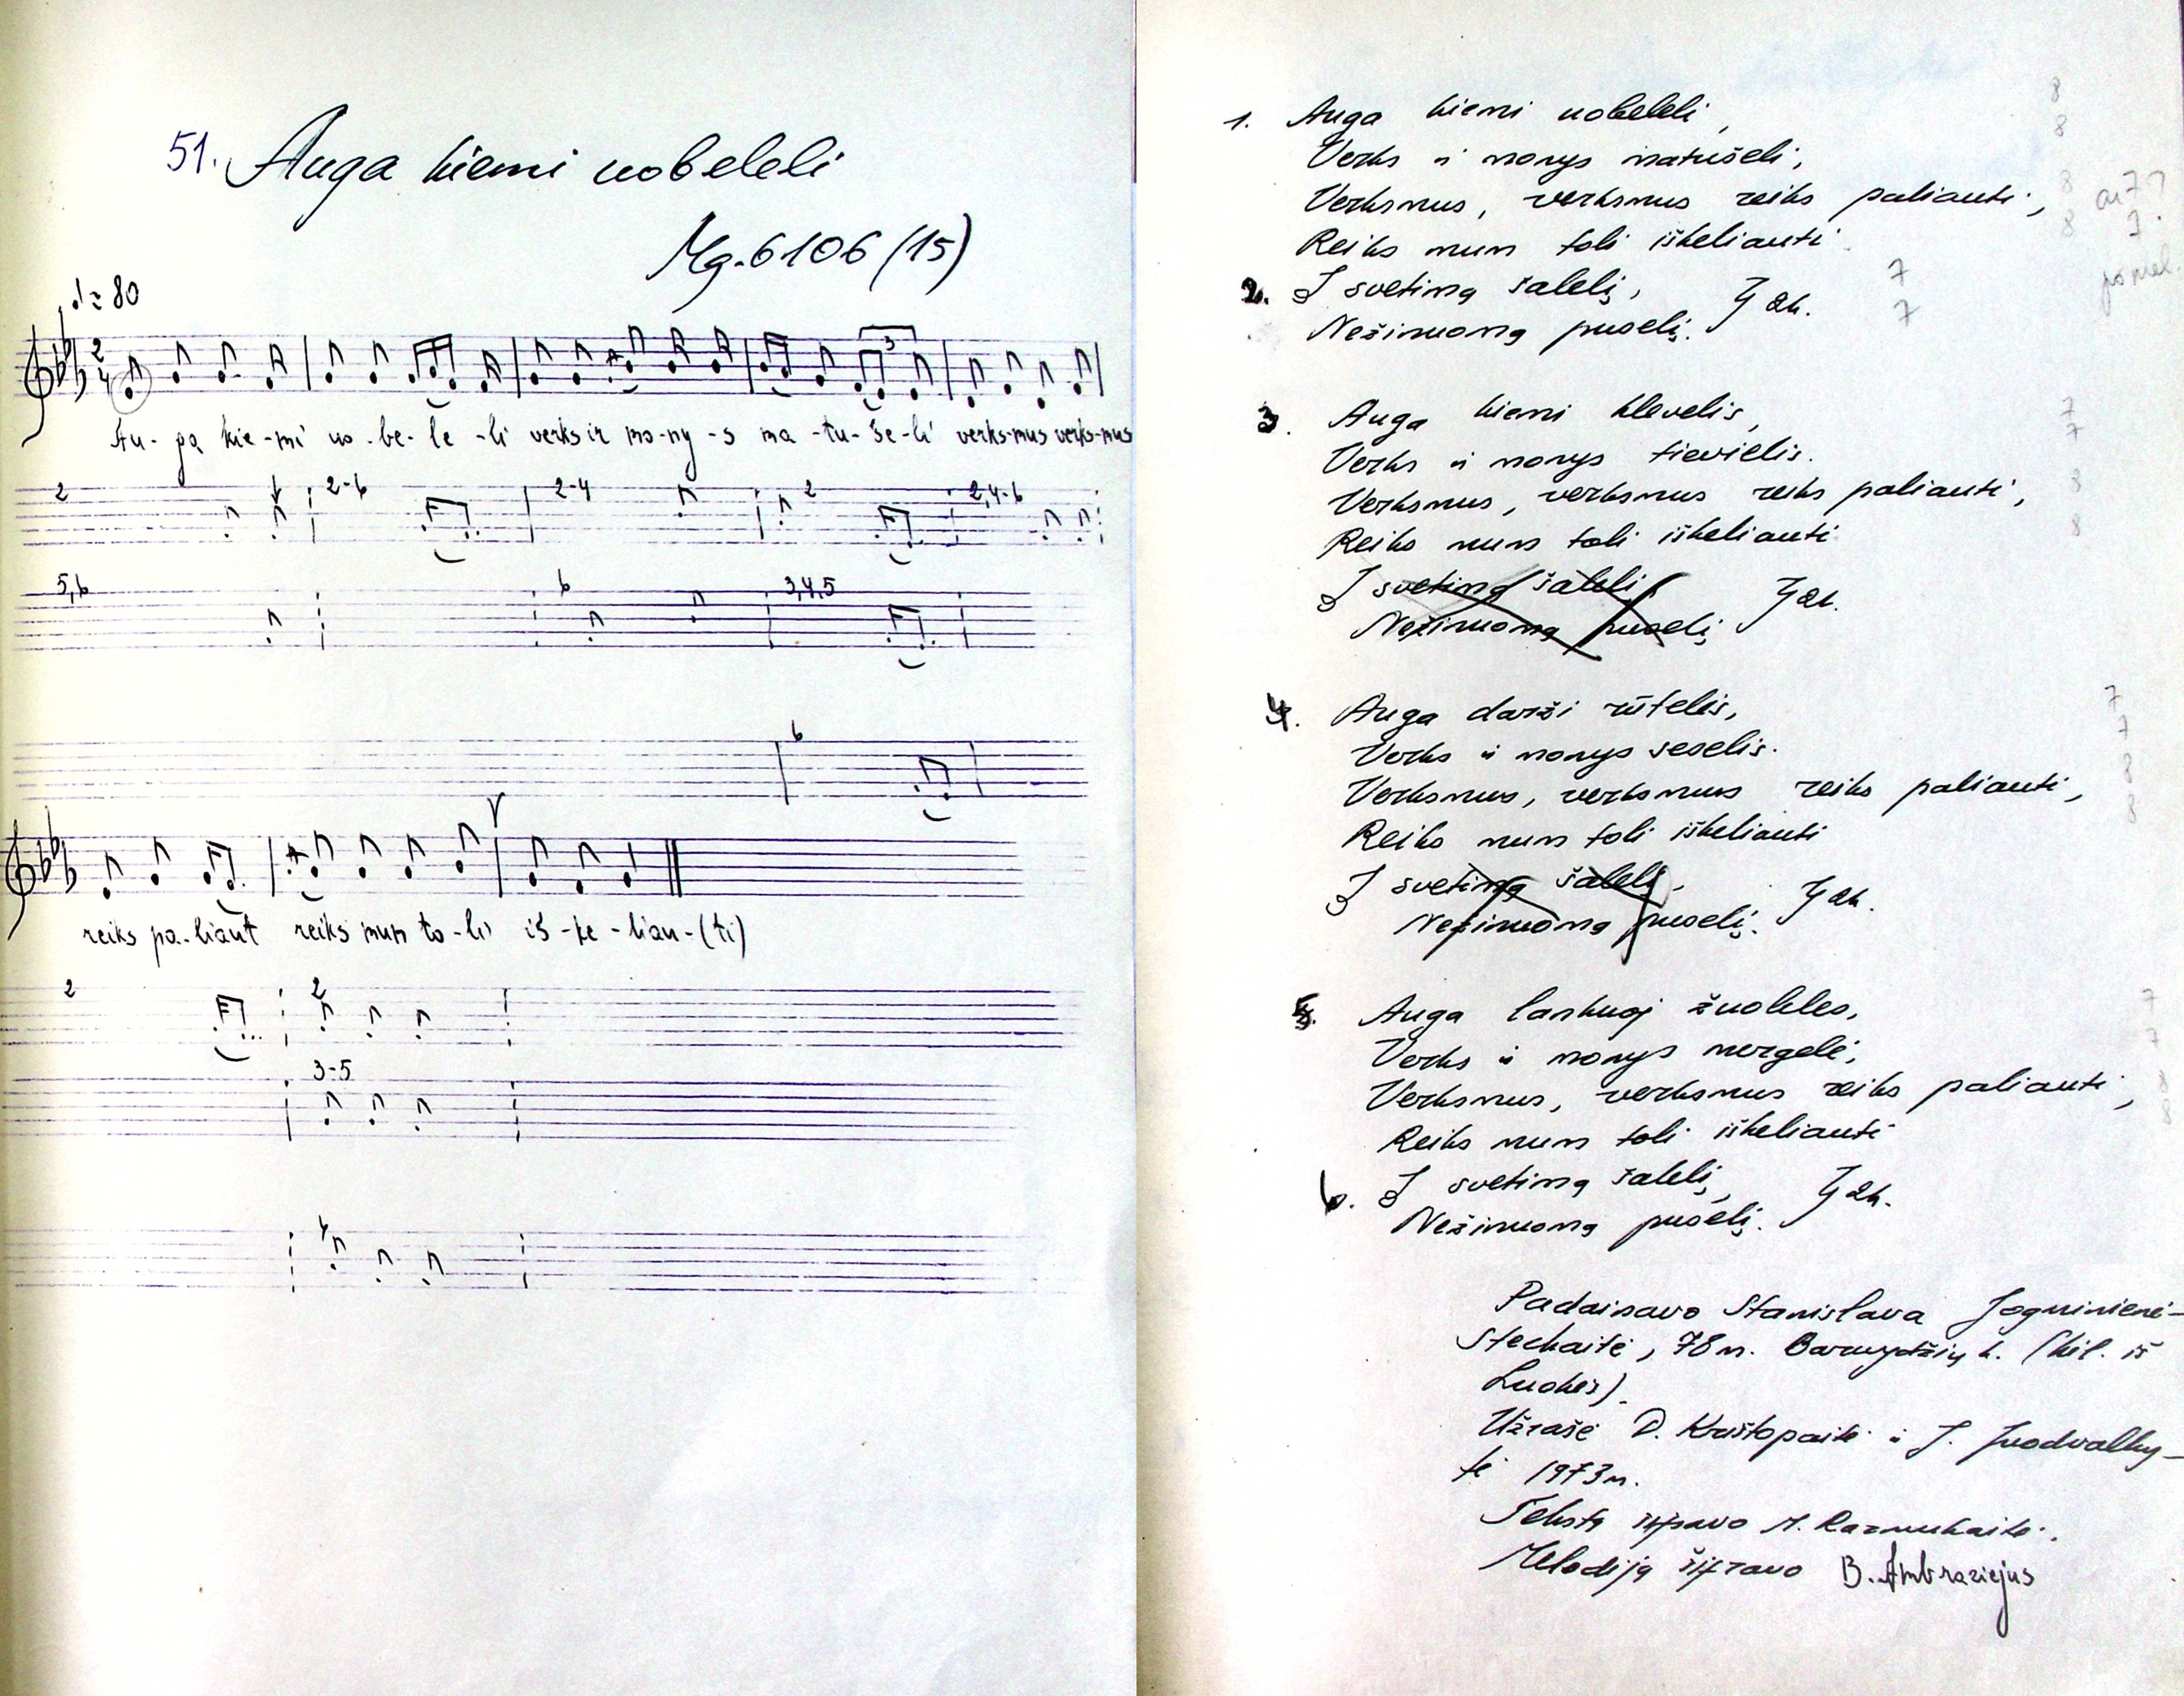 51. Auga kiemi uobeleli
Mg. 6106 (15)
♩ = 80
2
4
3
Au - ga kie - mi uo - be - le - li verks ir mo - ny - s ma - tu - še - li verks-mus verks-mus
2 2-6 2-4 2 2,4-6
5,6 6 3,4,5
6
V
reiks pa-liaut reiks mun to-li iš-ke-liau-(ti)
2 2
3-5
1. Auga kiemi uobeleli,
Verks ir monys matušeli,
Verksmus, verksmus reiks paliauti,
Reiks mun toli iškeliauti
2. Į svetimą šalelį,
Nežinuomą puselį. } 2k.
3. Auga kiemi klevelis,
Verks ir monys tievielis.
Verksmus, verksmus reiks paliauti,
Reiks mun toli iškeliauti
Į svetimą šalelį,
Nežinuomą puselį } 2k.
4. Auga darži rūtelis,
Verks ir monys seselis.
Verksmus, verksmus reiks paliauti,
Reiks mun toli iškeliauti
Į svetimą šalelį,
Nežinuomą puselį. } 2k.
5. Auga lankuoj žuoleles,
Verks ir monys mergelė,
Verksmus, verksmus reiks paliauti,
Reiks mun toli iškeliauti
6. Į svetimą šalelį,
Nežinuomą puselį. } 2k.
8
8
8 ar 7?
8 7.
7 po mel.
7
7
7
8
8
7
7
8
8
7
7
8
8
Padainavo Stanislava
Stechaitė, 78 m. k. (kil. iš
Luokės).
Užrašė D. Krištopaitė ir J. Juodvalky-
tė 1973 m.
Tekstą šifravo A. Razmukaitė.
Melodiją šifravo B. Ambraziejus